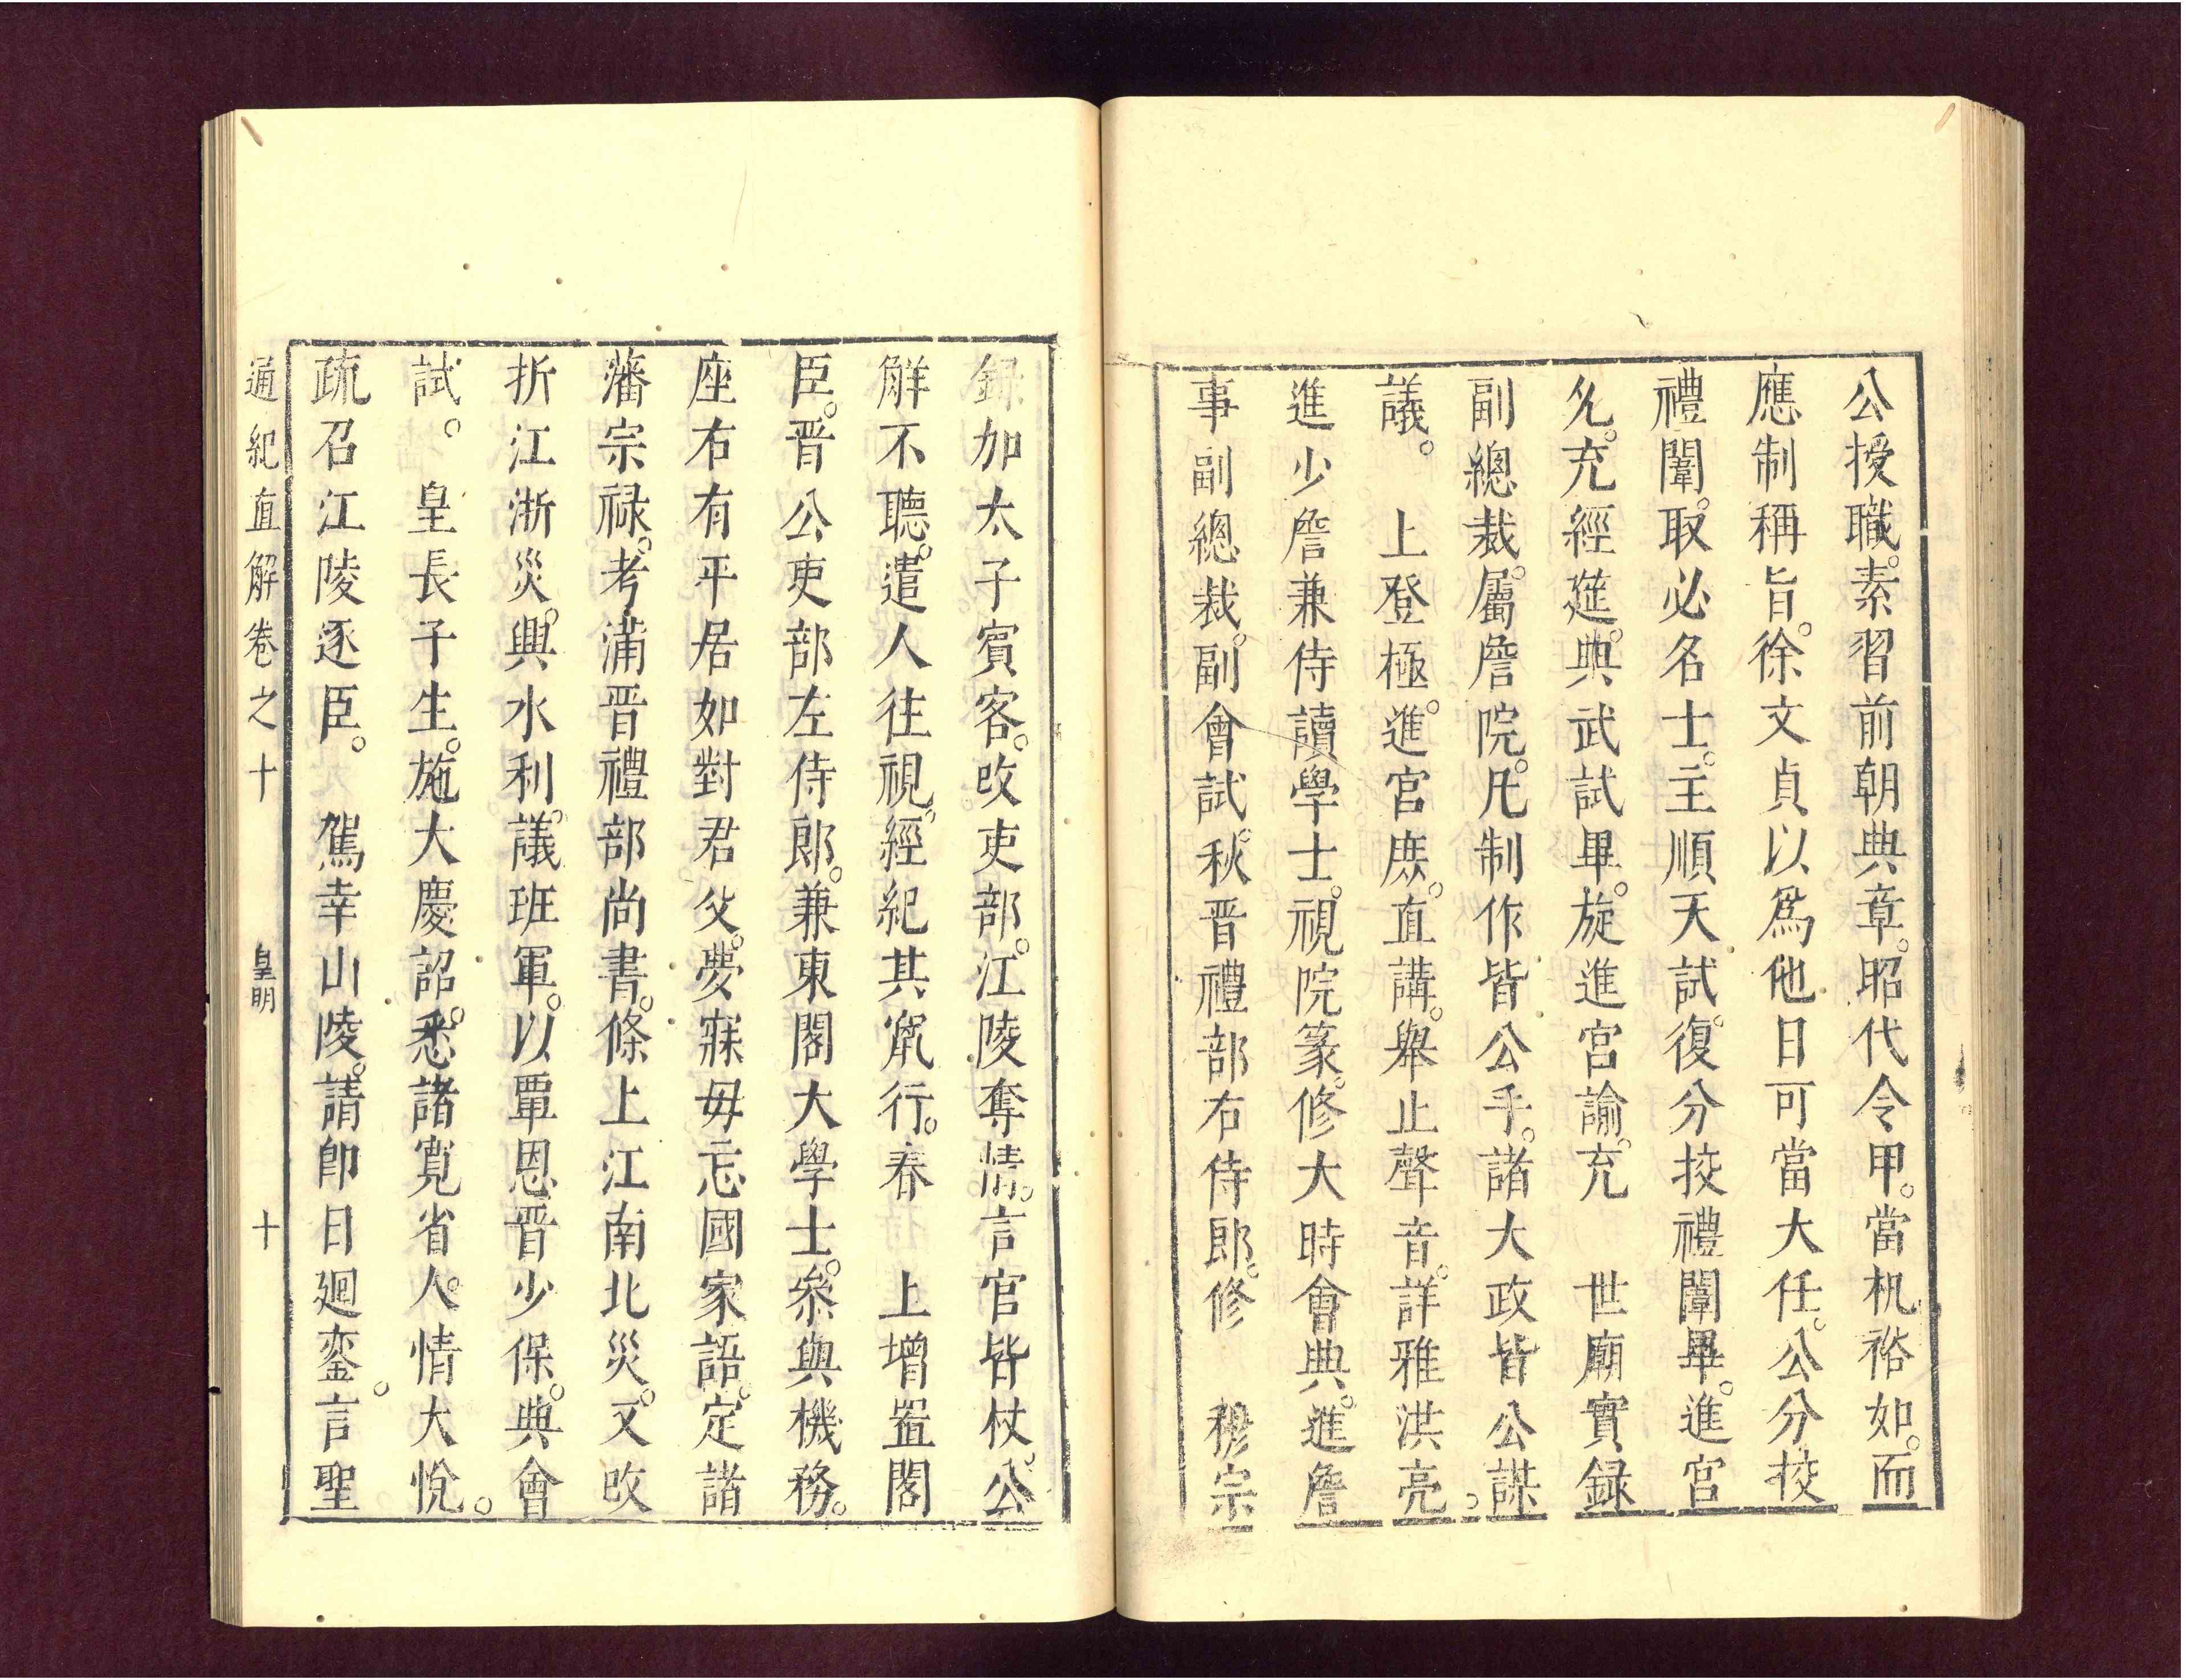 公授職。素習前朝典章。昭代令甲。當机裕如。而
應制稱旨。徐文貞以爲他日可當大任。公分挍
禮闈。取必名士。主順天試。復分挍禮闈畢。進宮
允。充經筵。典武試畢。旋進宮諭。充　世廟實録
副總裁。屬詹院。凡制作皆公手。諸大政皆公謀
議。　上登極。進宮庶。直講。舉止聲音。詳雅洪亮。
進少詹兼侍讀學士。視院篆。修大時會典。進詹
事副總裁。副會試。秋晋禮部右侍郎。修　穆宗
録加太子賓客。改吏部。江陵奪情。言官皆杖。公
觧不聽。遣人往視。經紀其竄行。春　上增置閣
臣。晋公吏部左侍郎。兼東閣大學士。叅與機務。
座右有平居如對君父。夢寐毋忘國家語。定諸
藩宗禄。考滿晋禮部尚書。條上江南北災。又改
折江浙災。興水利。議班軍。以覃恩晋少保。典會
試。　皇長子生。施大慶詔。悉諸寬省。人情大悅。
疏召江陵逐臣。　駕幸山陵。請即日廻鑾。言聖
通紀直解卷之十　皇明　十